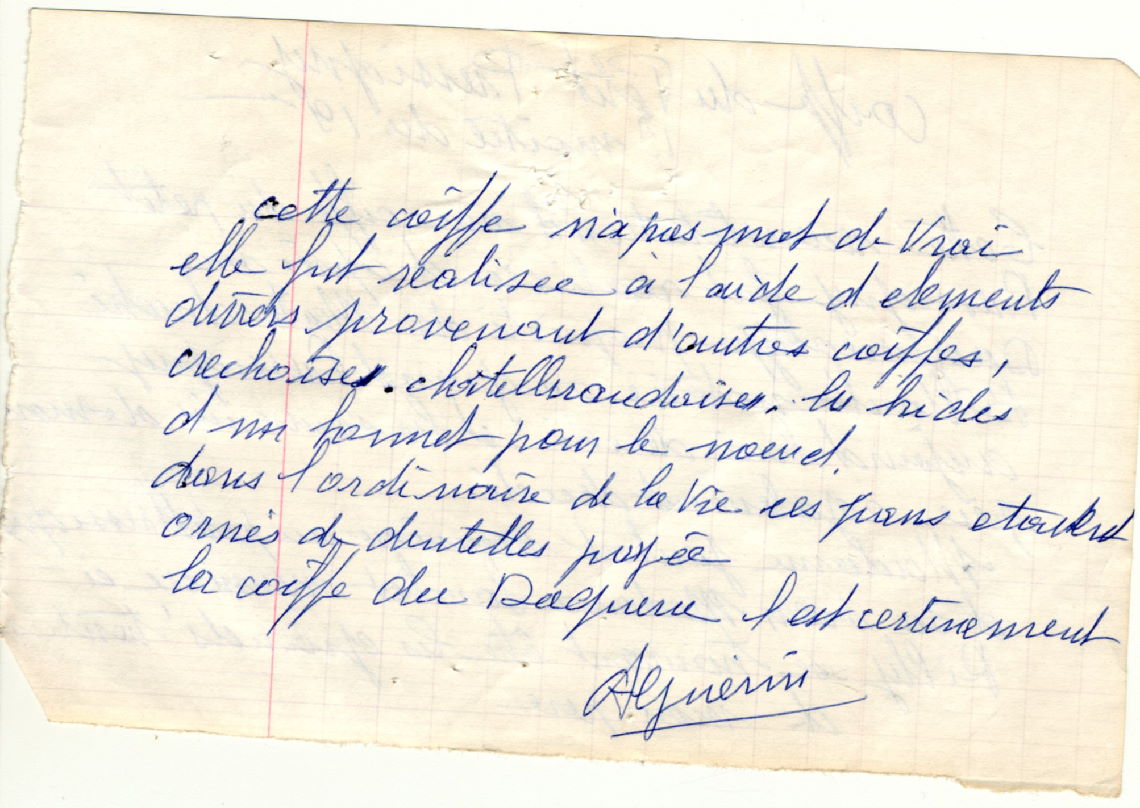 cette coiffe n'a pas mot de Vrai
elle fut realisee à l'aide d elements
divers provenant d'autres coiffes,
crechoises. châtelleraudaises. les brides
d un bonnet pour le noeud.
dans l'ordinaire de la Vie ces pans etaient
ornés de dentelles
la coiffe du Daguerre l est certinement
A Guerin